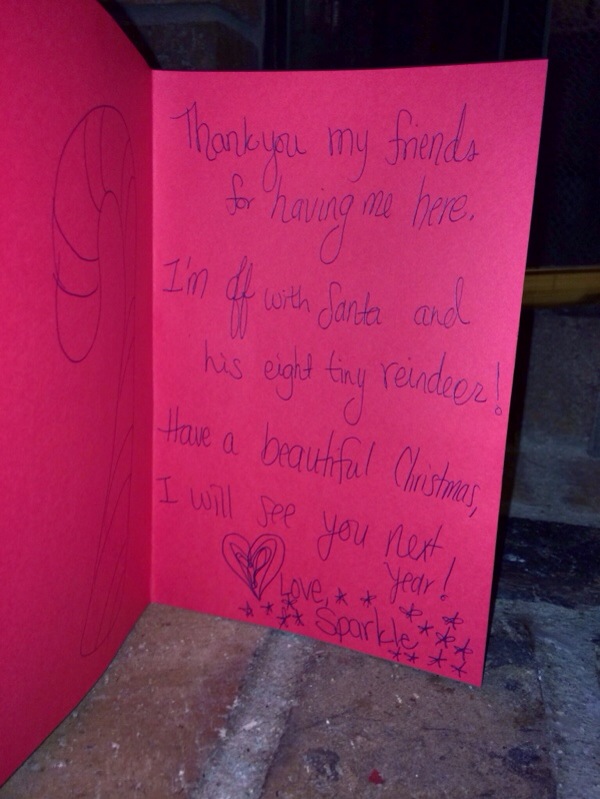 Thank you my friends
for having me here.
I'm off with Santa and
his eight tiny reindeer!
Have a beautiful Christmas,
I will see you next
year!
Love,
Sparkle